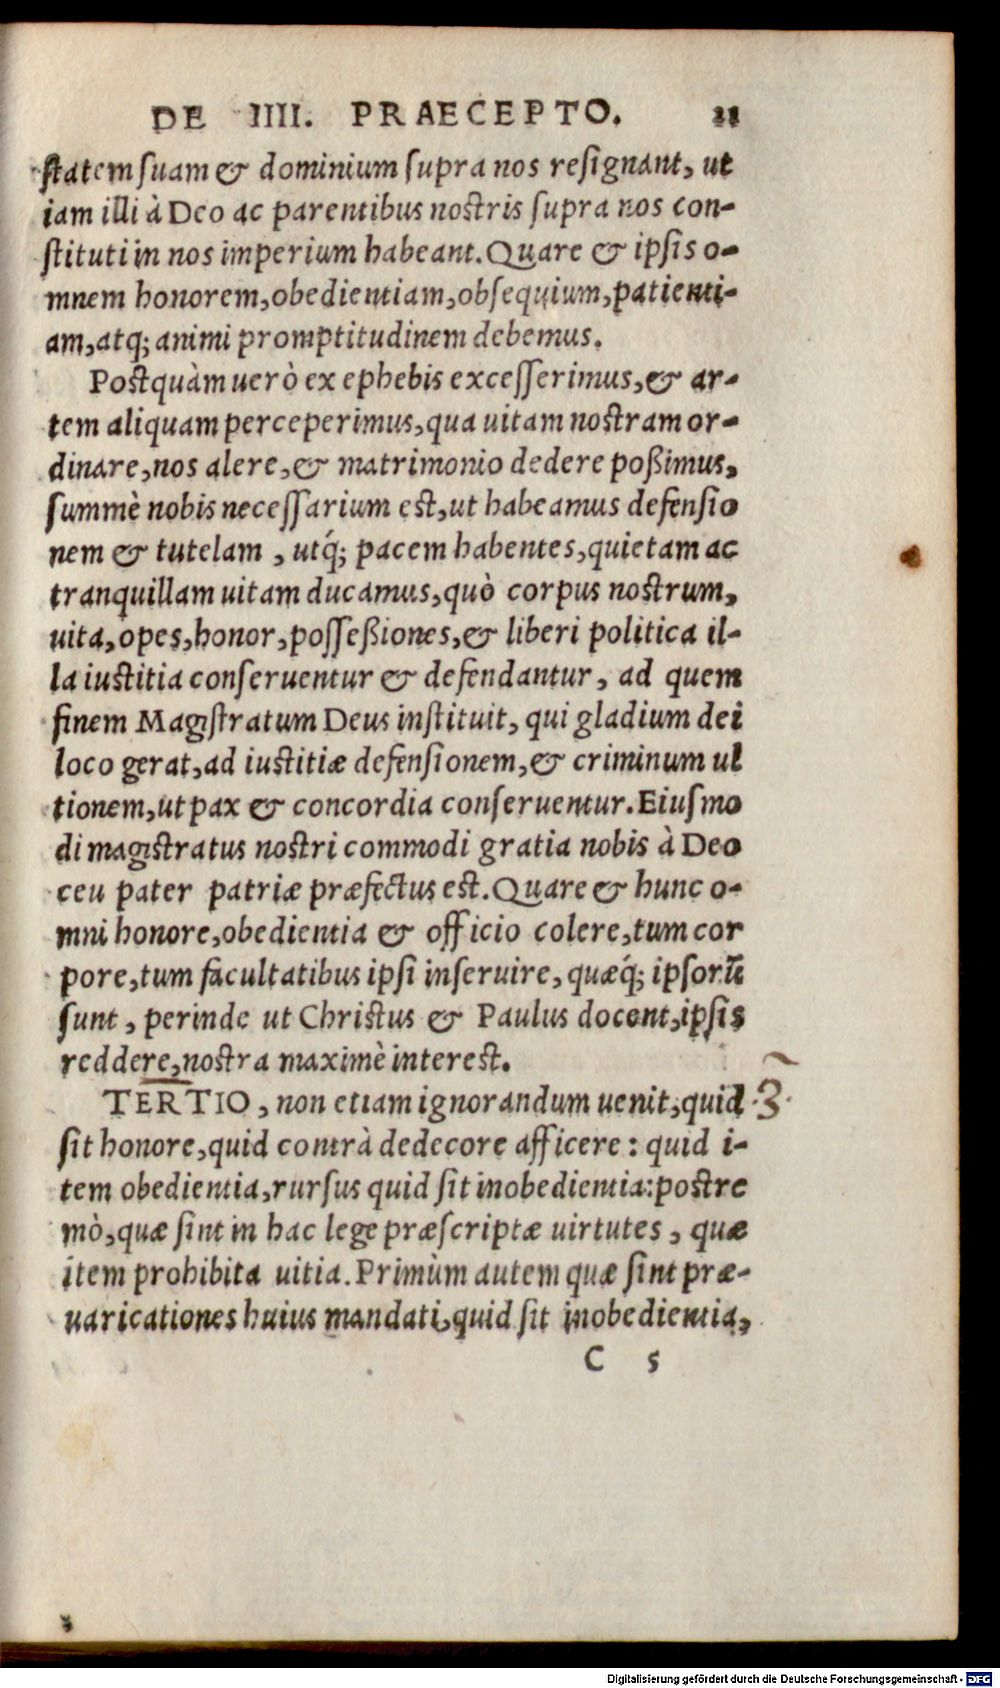 DE IIII. PRAECEPTO. 21
ſtatem ſuam & dominium ſupra nos reſignant, ut
iam illi à Deo ac parentibus noſtris ſupra nos con-
ſtituti in nos imperium habeant. Quare & ipſis o-
mnem honorem, obedientiam, obſequium, patienti-
am, atq; animi promptitudinem debemus.
Poſtquàm uerò ex ephebis exceſſerimus, & ar-
tem aliquam perceperimus, qua uitam noſtram or-
dinare, nos alere, & matrimonio dedere poßimus,
ſummè nobis neceſſarium eſt, ut habeamus defenſio
nem & tutelam, utq́; pacem habentes, quietam ac
tranquillam uitam ducamus, quò corpus noſtrum,
uita, opes, honor, poſſeßiones, & liberi politica il-
la iuſtitia conſeruentur & defendantur, ad quem
finem Magiſtratum Deus inſtituit, qui gladium dei
loco gerat, ad iuſtitiæ defenſionem, & criminum ul
tionem, ut pax & concordia conſeruentur. Eiuſmo
di magiſtratus noſtri commodi gratia nobis à Deo
ceu pater patriæ præfectus eſt. Quare & hunc o-
mni honore, obedientia & officio colere, tum cor
pore, tum facultatibus ipſi inſeruire, quæq́; ipſorū
ſunt, perinde ut Chriſtus & Paulus docent, ipſis
reddere, noſtra maximè intereſt.
TERTIO, non etiam ignorandum uenit, quid ·3·
ſit honore, quid contrà dedecore afficere: quid i-
tem obedientia, rurſus quid ſit inobedientia: poſtre
mò, quæ ſint in hac lege præſcriptæ uirtutes, quæ
item prohibita uitia. Primùm autem quæ ſint præ-
uaricationes huius mandati, quid ſit inobedientia,
C 5
Digitalisierung gefördert durch die Deutsche Forschungsgemeinschaft - DFG